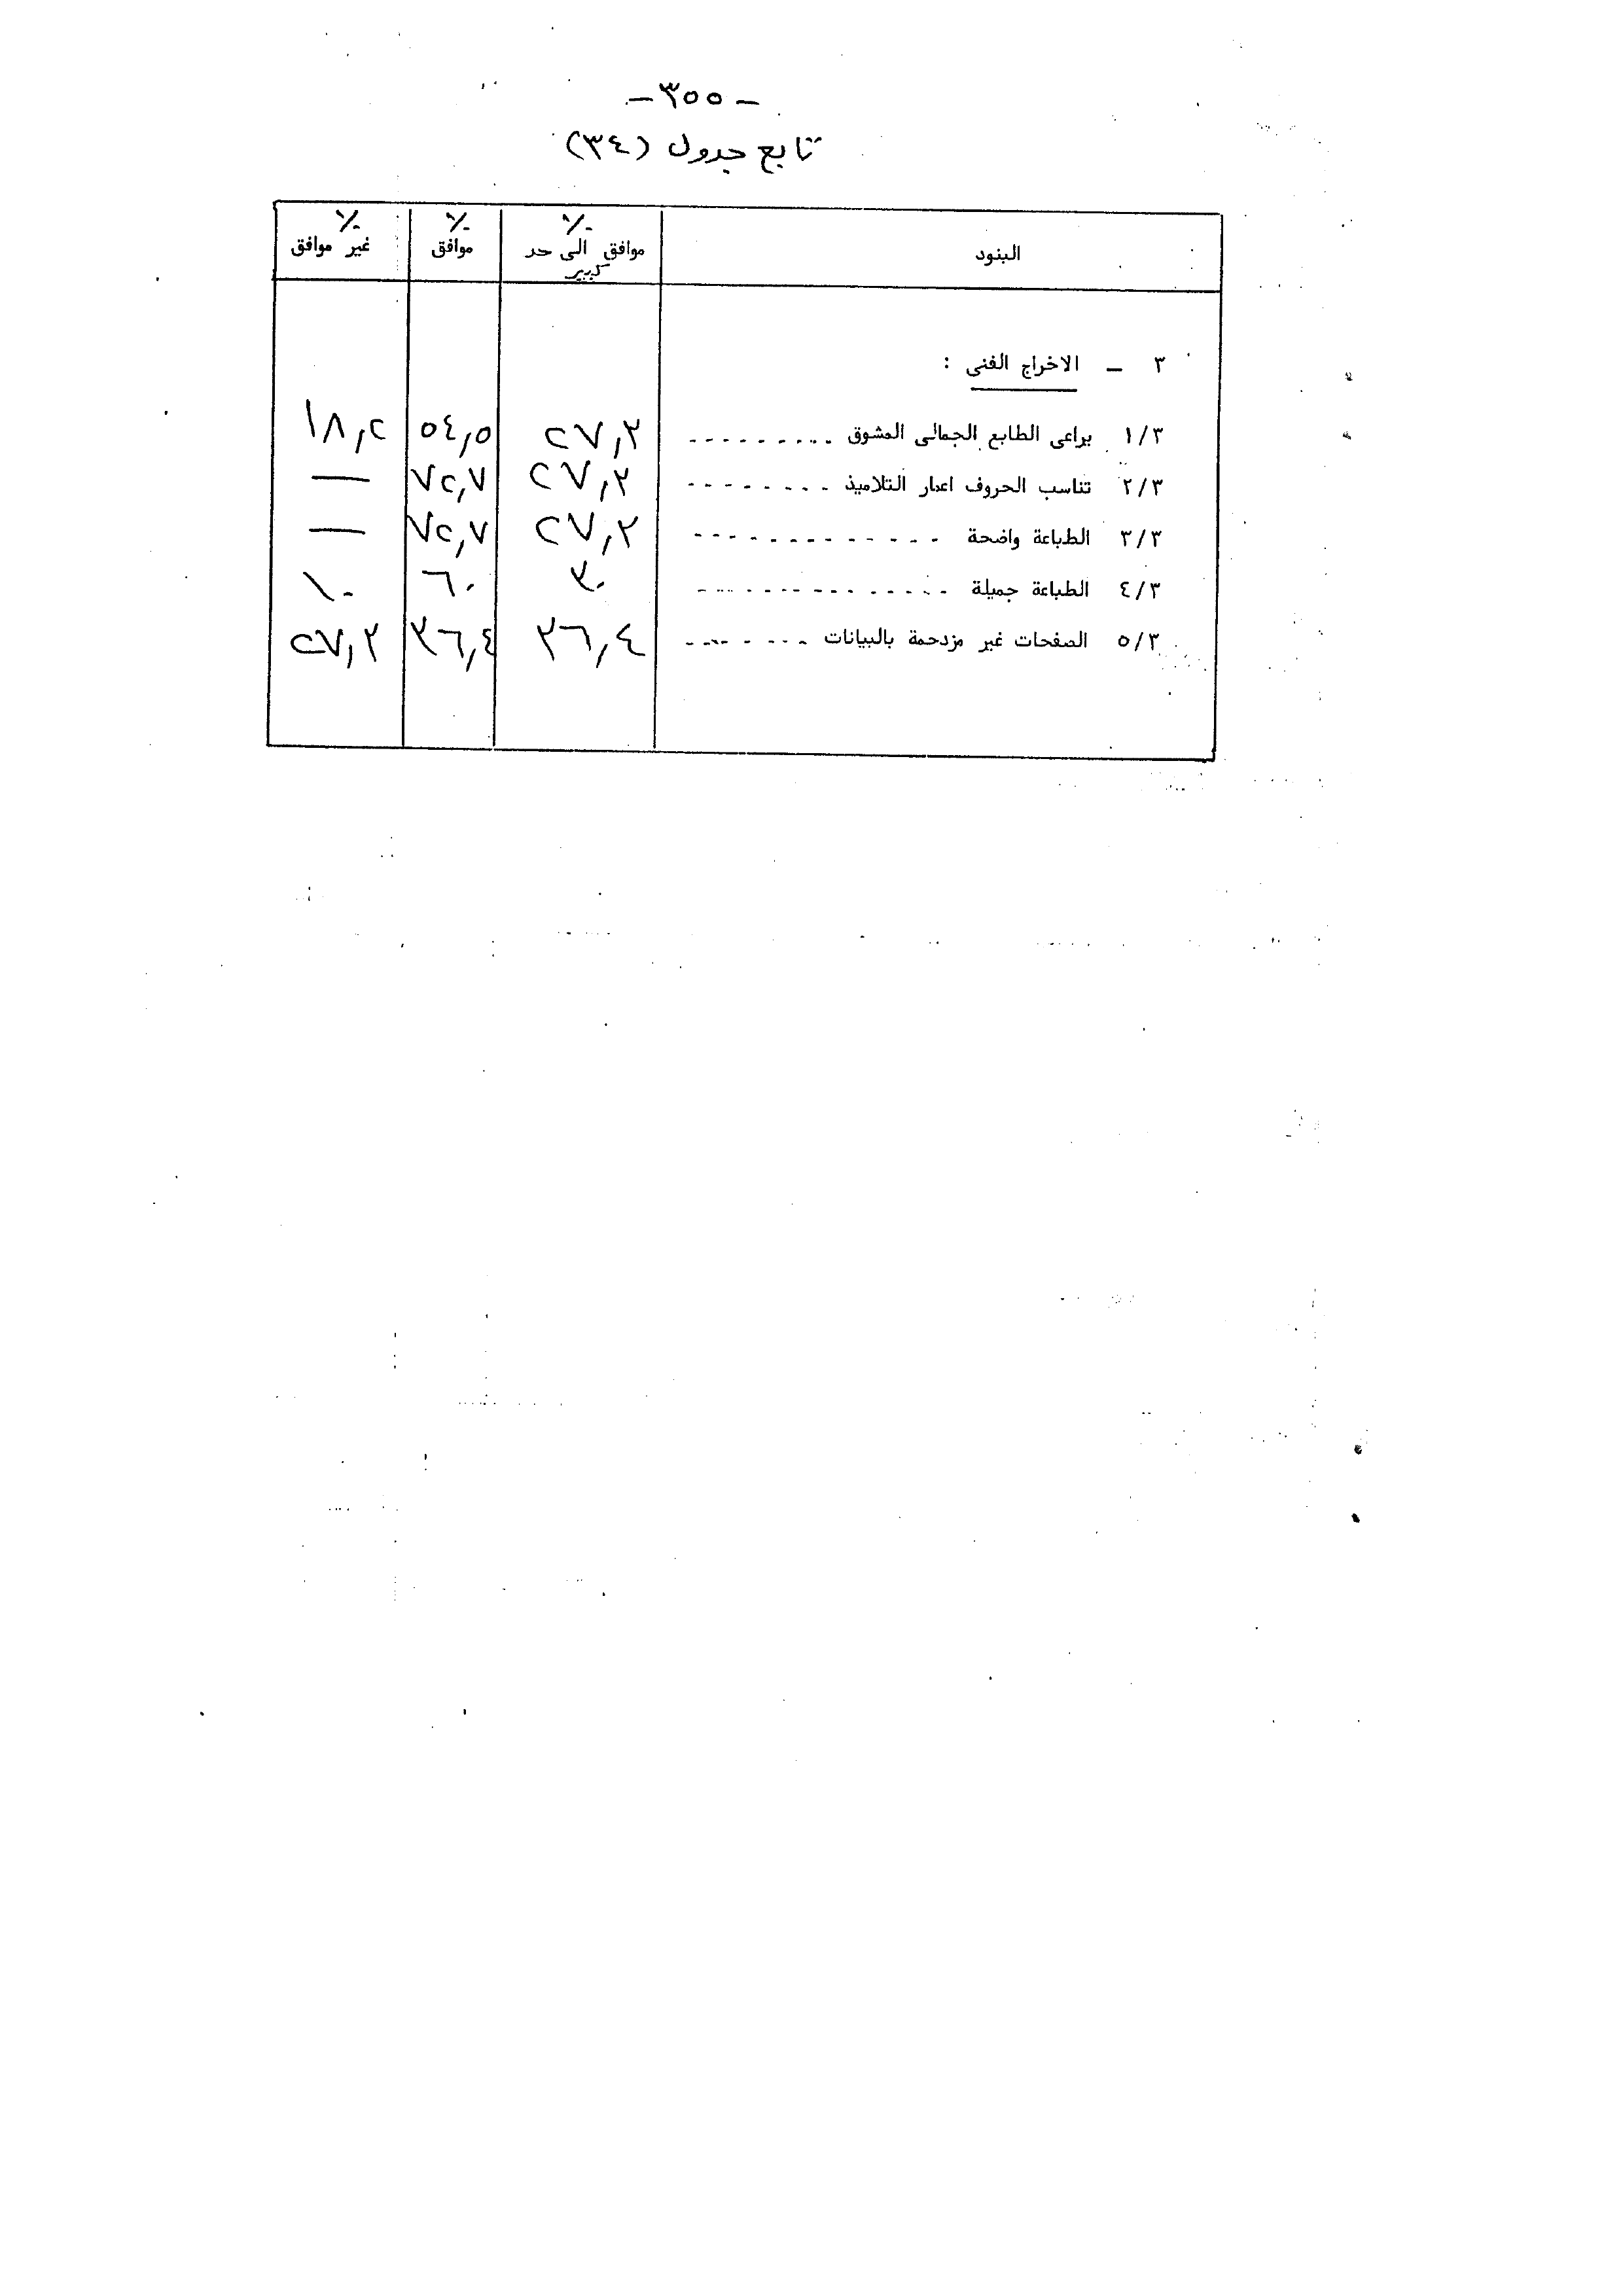 - ٣٥٥ -
تابع جدول (٣٤)
البنود	٪ موافق الى حد كبير	٪ موافق	٪ غير موافق
٣ - الاخراج الفنى :
١/٣ يراعى الطابع الجمالى المشوق	٢٧,٣	٥٤,٥	١٨,٢
٢/٣ تناسب الحروف اعمار التلاميذ	٢٧,٣	٧٢,٧	—
٣/٣ الطباعة واضحة	٢٧,٣	٧٢,٧	—
٤/٣ الطباعة جميلة	٣٠	٦٠	١٠
٥/٣ الصفحات غير مزدحمة بالبيانات	٣٦,٤	٣٦,٤	٢٧,٣